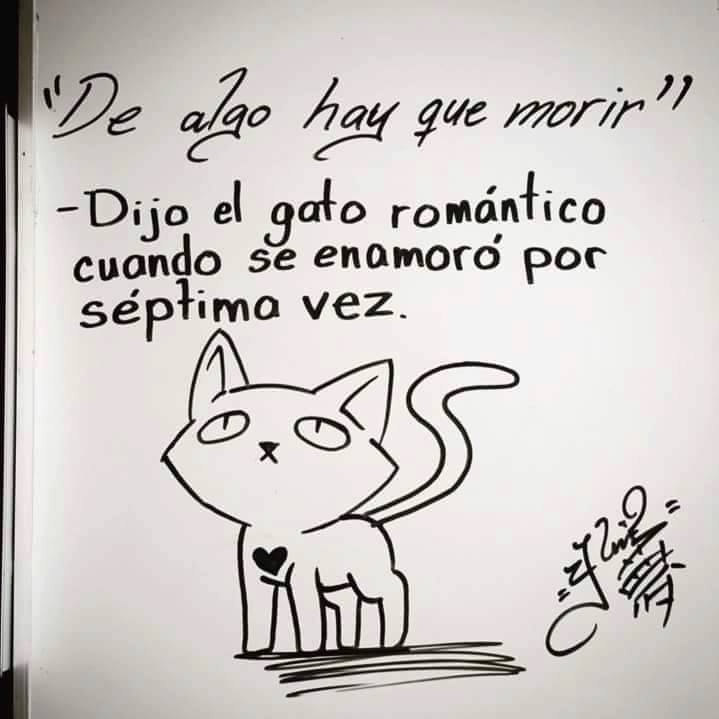 "De algo hay que morir"
-Dijo el gato romántico
cuando se enamoró por
séptima vez.